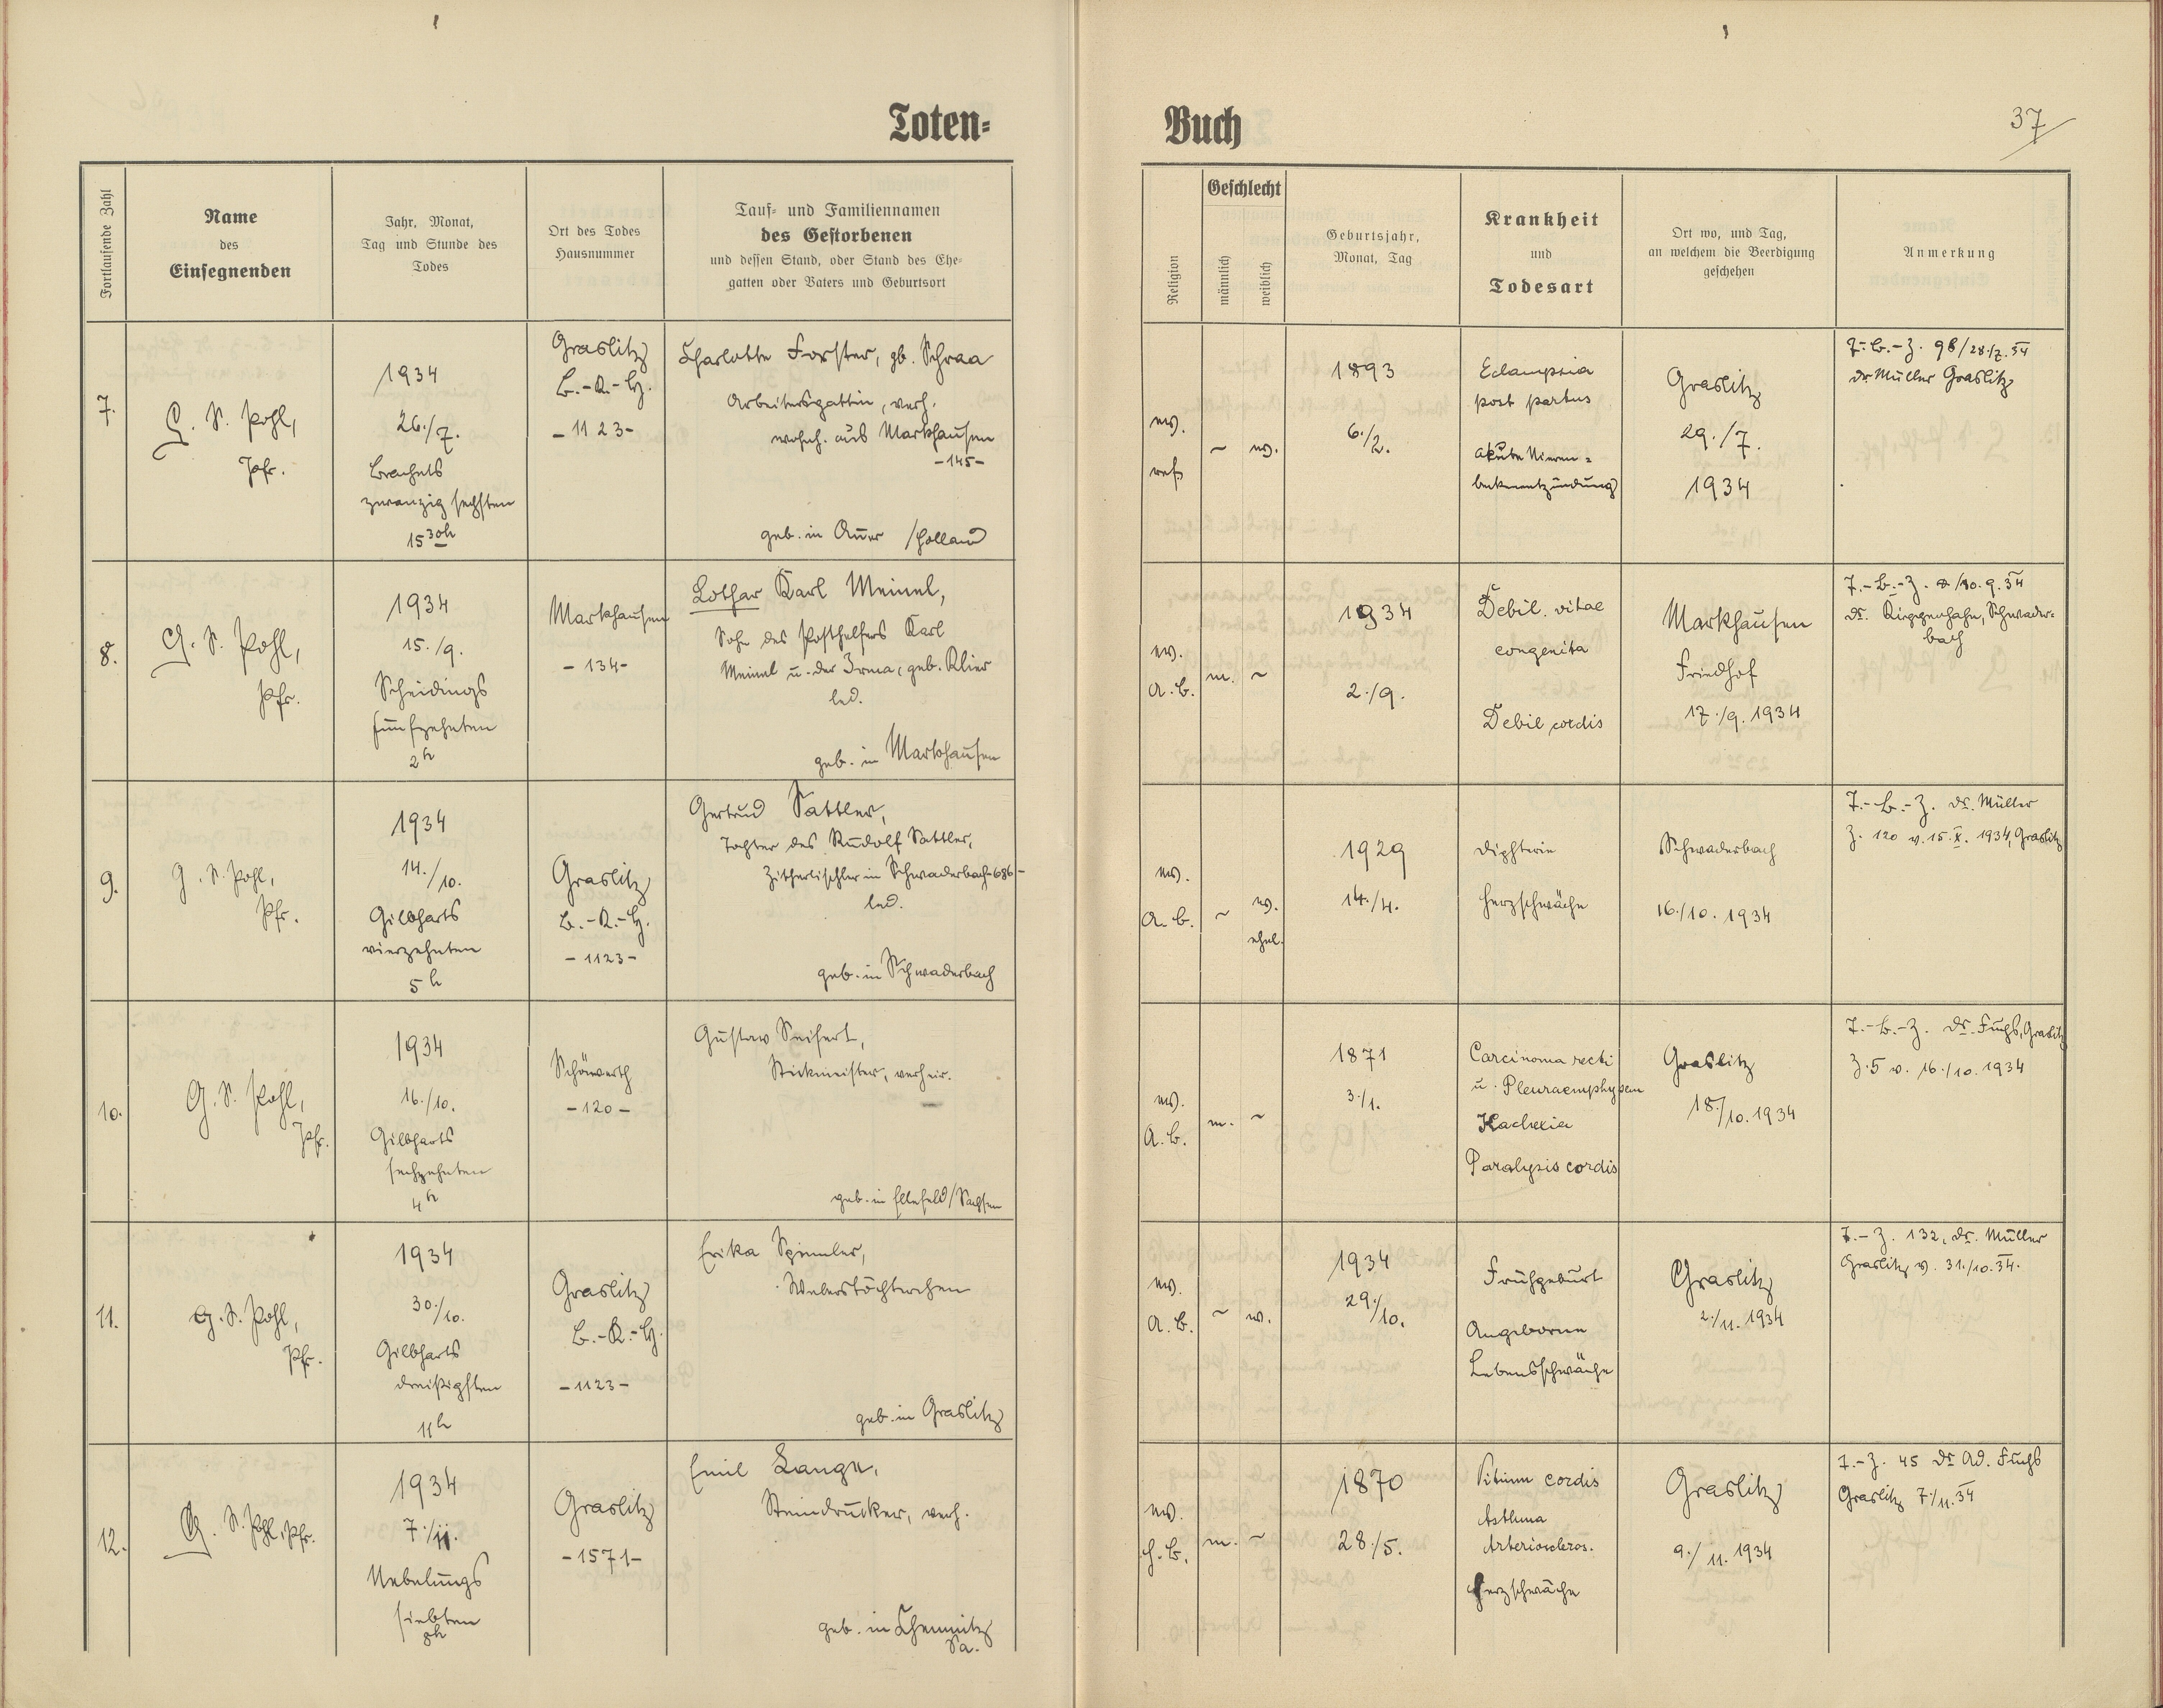 Toten-
Buch
37
Fortlaufende Zahl
Name
des
Einsegnenden
Jahr, Monat,
Tag und Stunde des
Todes
Ort des Todes
Hausnummer
Tauf- und Familiennamen
des Gestorbenen
und dessen Stand, oder Stand des Ehe-
gatten oder Vaters und Geburtsort
Religion
Geschlecht
männlich
weiblich
Geburtsjahr,
Monat, Tag
Krankheit
und
Todesart
Ort wo, und Tag,
an welchem die Beerdigung
geschehen
Anmerkung
7.
G. S. Pohl,
Pfr.
1934
26./7.
Brachets
zwanzig sechsten
15 30h
Graslitz
B.-K.-H.
-1123-
Charlotte Forster, gb. Schraa
Arbeitersgattin, verh.
wohnh. aus Markhausen
-145-
geb. in Auer /Holland
ev.
ref.
~
w.
1893
6./2.
Eclampsia
post partus
akute Nieren-
beckenentzündung
Graslitz
29./7.
1934
T.-B.-Z. 98/28./7.34
Dr Müller Graslitz
8.
G. S. Pohl,
Pfr.
1934
15./9.
Scheidings
fünfzehnten
2h
Markhausen
-134-
Lothar Karl Meinel,
Sohn des Posthelfers Karl
Meinel u. der Irma, geb. Klier
led.
geb. in Markhausen
ev.
A.B.
m.
~
1934
2./9.
Debil. vitae
congenita
Debil cordis
Markhausen
Friedhof
17./9. 1934
T.-B.-Z. /10.9.34
Dr. Kirpgenhahn, Schwader-
bach
9.
G. S. Pohl,
Pfr.
1934
14./10.
Gilbharts
vierzehnten
5h
Graslitz
B.-K.-H.
-1123-
Gertrud Sattler,
Tochter des Rudolf Sattler,
Zithertischler in Schwaderbach-686-
led.
geb. in Schwaderbach
ev.
A.B.
~
w.
ehel.
1929
14./4.
Diphterie
Herzschwäche
Schwaderbach
16./10. 1934
T.-B.-Z. Dr. Müller
Z. 120 v. 15.X. 1934, Graslitz
10.
G. S. Pohl,
Pfr.
1934
16./10.
Gilbharts
sechzehnten
4h
Schönwerth
-120-
Gustav Seifert,
Stickmeister, verheir.
geb. in Ellefeld/Sachsen
ev.
A.B.
m.
~
1871
3./1.
Carcinoma recti
u. Pleuraemphysem
Kachexia
Paralysis cordis
Graslitz
18./10. 1934
T.-B.-Z. Dr. Fuchs, Graslitz
Z.5 v. 16./10. 1934
11.
G. S. Pohl,
Pfr.
1934
30./10.
Gilbharts
dreißigsten
11h
Graslitz
B.-K.-H.
-1123-
Erika Spinnler,
Weberstöchterchen
geb. in Graslitz
ev.
A.B.
~
w.
1934
29./10.
Frühgeburt
Angeborene
Lebensschwäche
Graslitz
2./11. 1934
T.-Z. 132, Dr. Müller
Graslitz v. 31./10.34.
12.
G. S. Pohl, Pfr.
1934
7./11.
Nebelungs
siebten
Graslitz
-1571-
Emil Lange,
Steindrucker, verh.
geb. in Chemnitz
Sa.
ev.
H.B.
m.
~
1870
28./5.
Vitium cordis
Asthma
Arterioscleros.
Herzschwäche
Graslitz
9./11. 1934
T.-Z. 45 Dr Ad. Fuchs
Graslitz 7./11.34